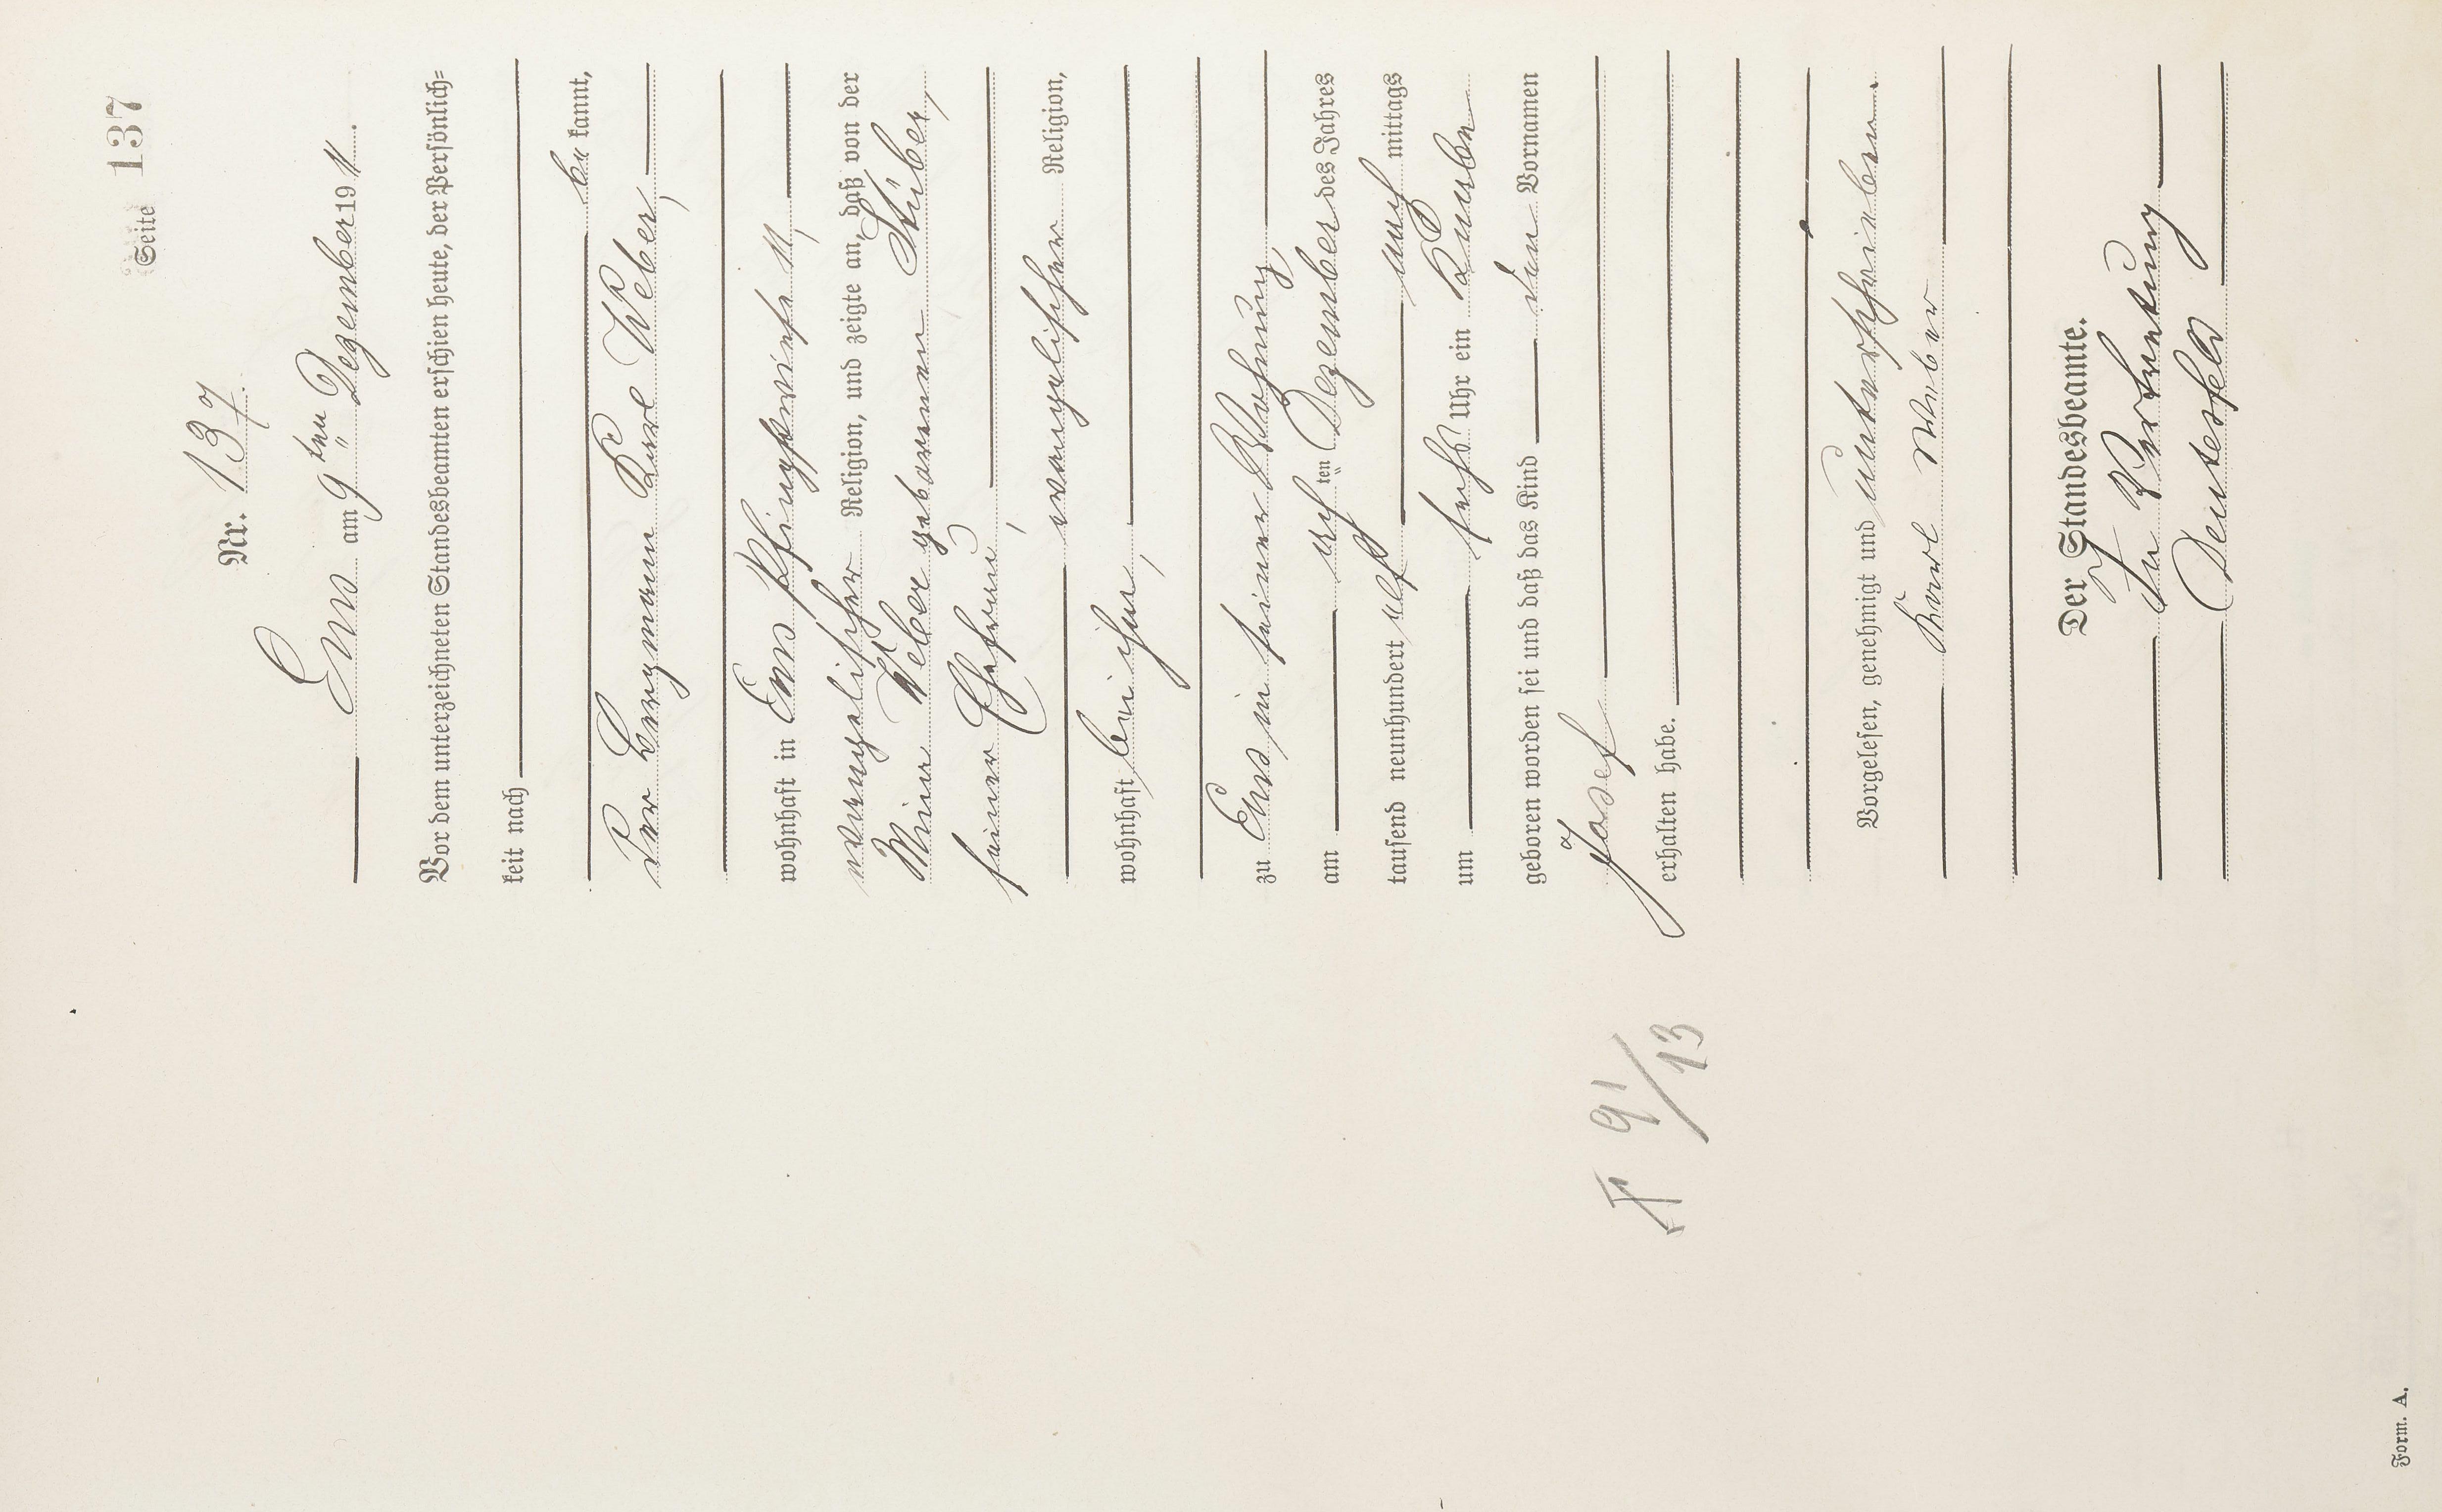 Seite 137
Nr. 137.
Ems am 9ten Dezember 1911.
Vor dem unterzeichneten Standesbeamten erschien heute, der Persönlich-
keit nach
be kannt,
Der Bergmann Karl Weber,
wohnhaft in Ems Pfingstwiese 11,
evangelischer Religion, und zeigte an, daß von der
Mina Weber geborenen Stüber,
seiner Ehefrau,
evangelischer Religion,
wohnhaft bei ihm,
zu Ems in seiner Wohnung,
am achten Dezember des Jahres
tausend neunhundert elf nach mittags
um sechs Uhr ein Knabe
geboren worden sei und daß das Kind den Vornamen
Josef
erhalten habe.
Vorgelesen, genehmigt und unterschrieben
Karl Weber
Der Standesbeamte.
In Vertretung
91/13
Form. A.